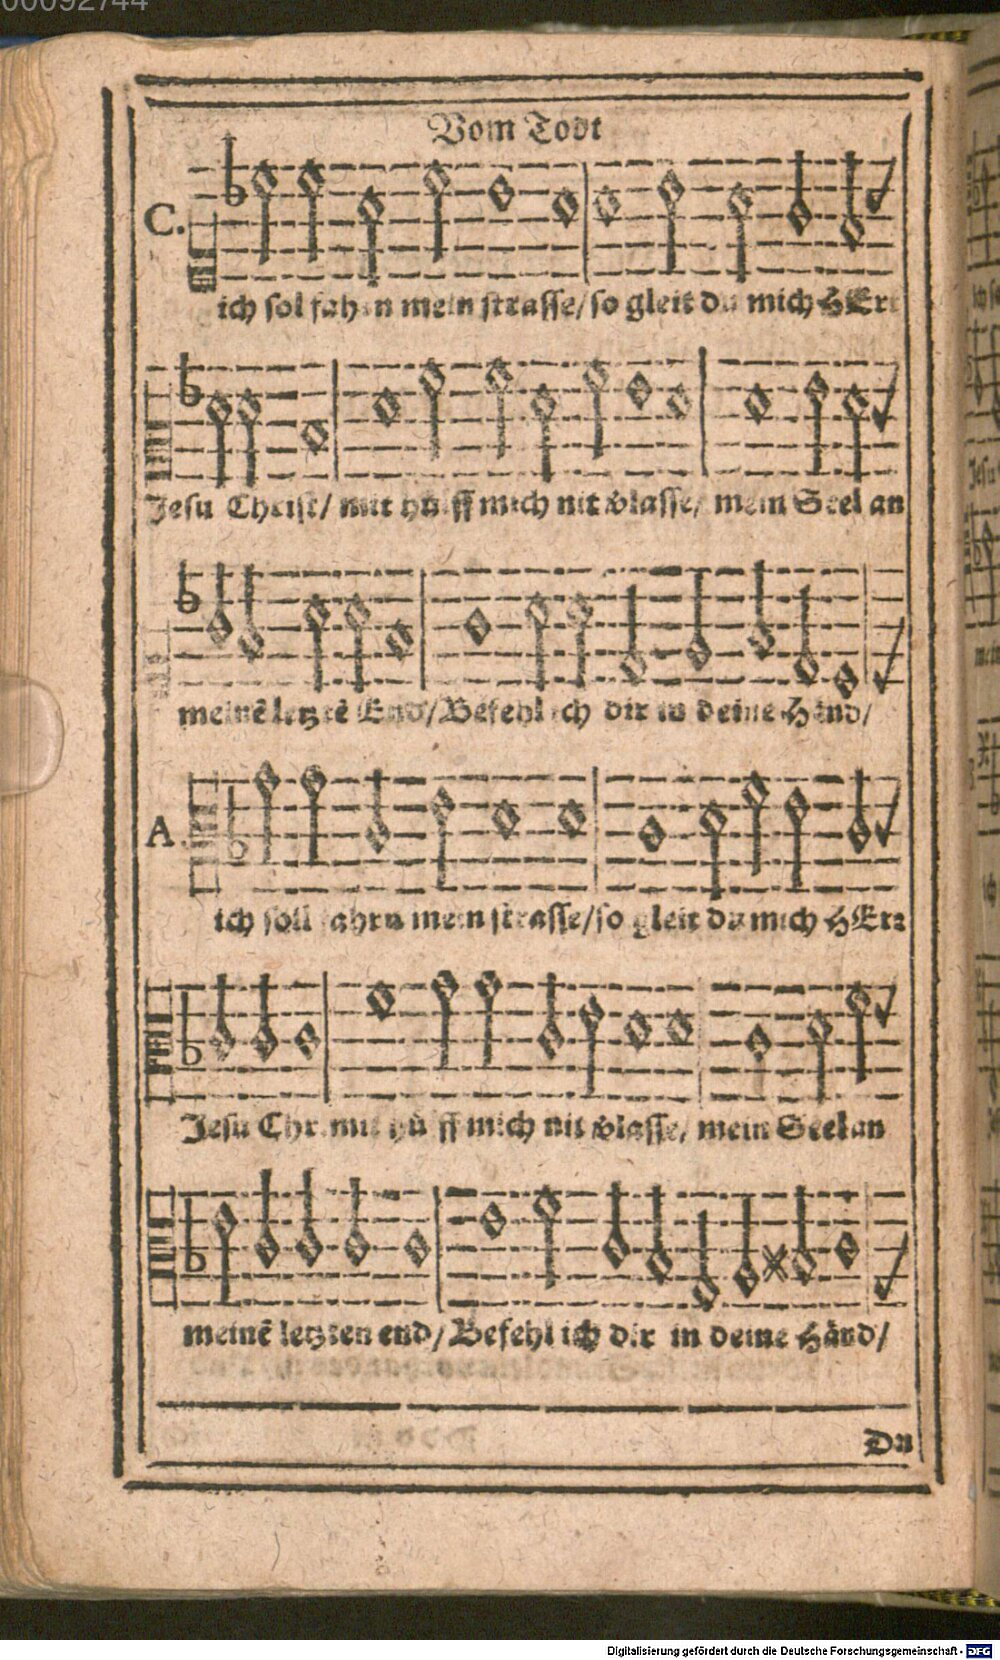 00092744
Vom Todt
C.
ich sol fahrn mein strasse/so gleit du mich HErr
Jesu Christ/ mit hülff mich nit vlasse/ mein Seel an
meinē letztē End/Befehl ich dir in deine Händ/
A.
ich soll fahrn mein strasse/so gleit du mich HErr
Jesu Chr. mit hülff mich nit vlasse/ mein Seel an
meinē letzten end/Befehl ich dir in deine Händ/
Du
Digitalisierung gefördert durch die Deutsche Forschungsgemeinschaft - DFG